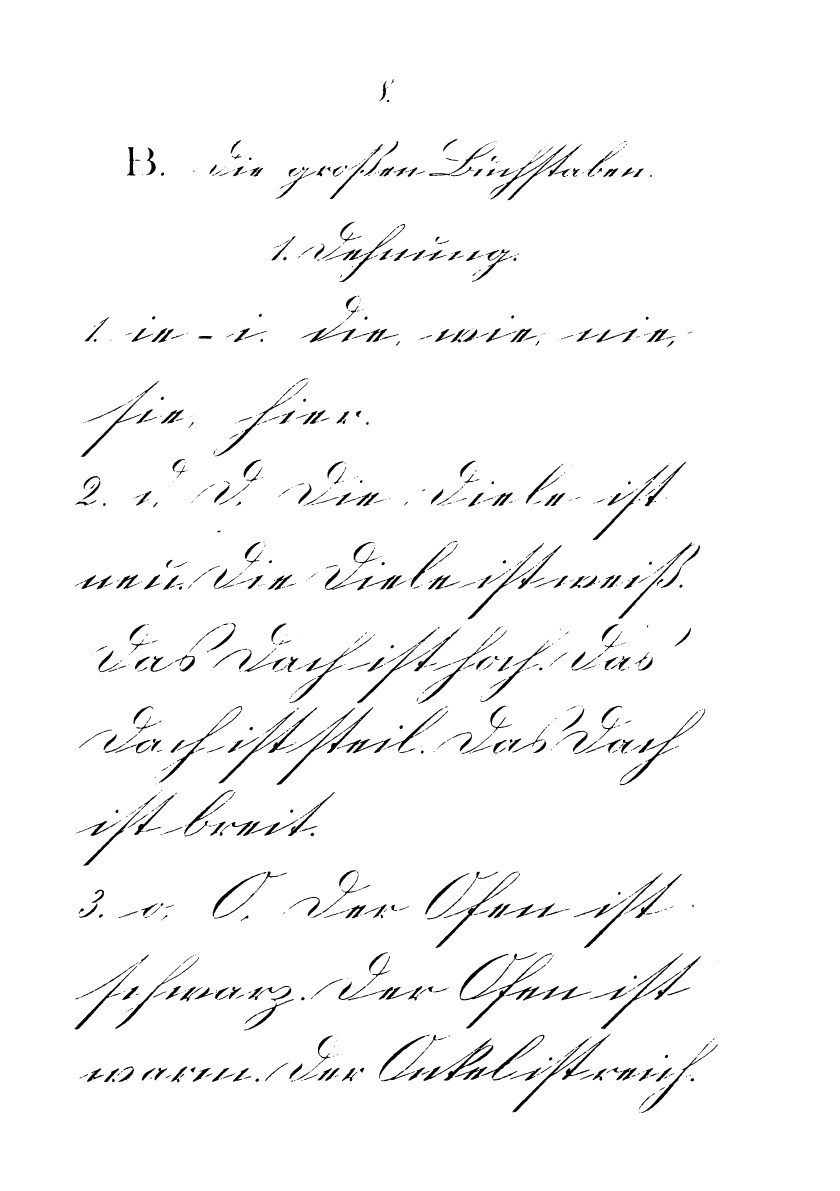 8.
B. Die großen Buchstaben.
1. Dehnung.
1. ie - i. die, wie, nie,
sie, hier.
2. d. D. Die Diele ist
neu. Die Diele ist weiß.
Das Dach ist hoch. Das
Dach ist steil. Das Dach
ist breit.
3. o, O. Der Ofen ist
schwarz. Der Ofen ist
warm. Der Onkel ist reich.